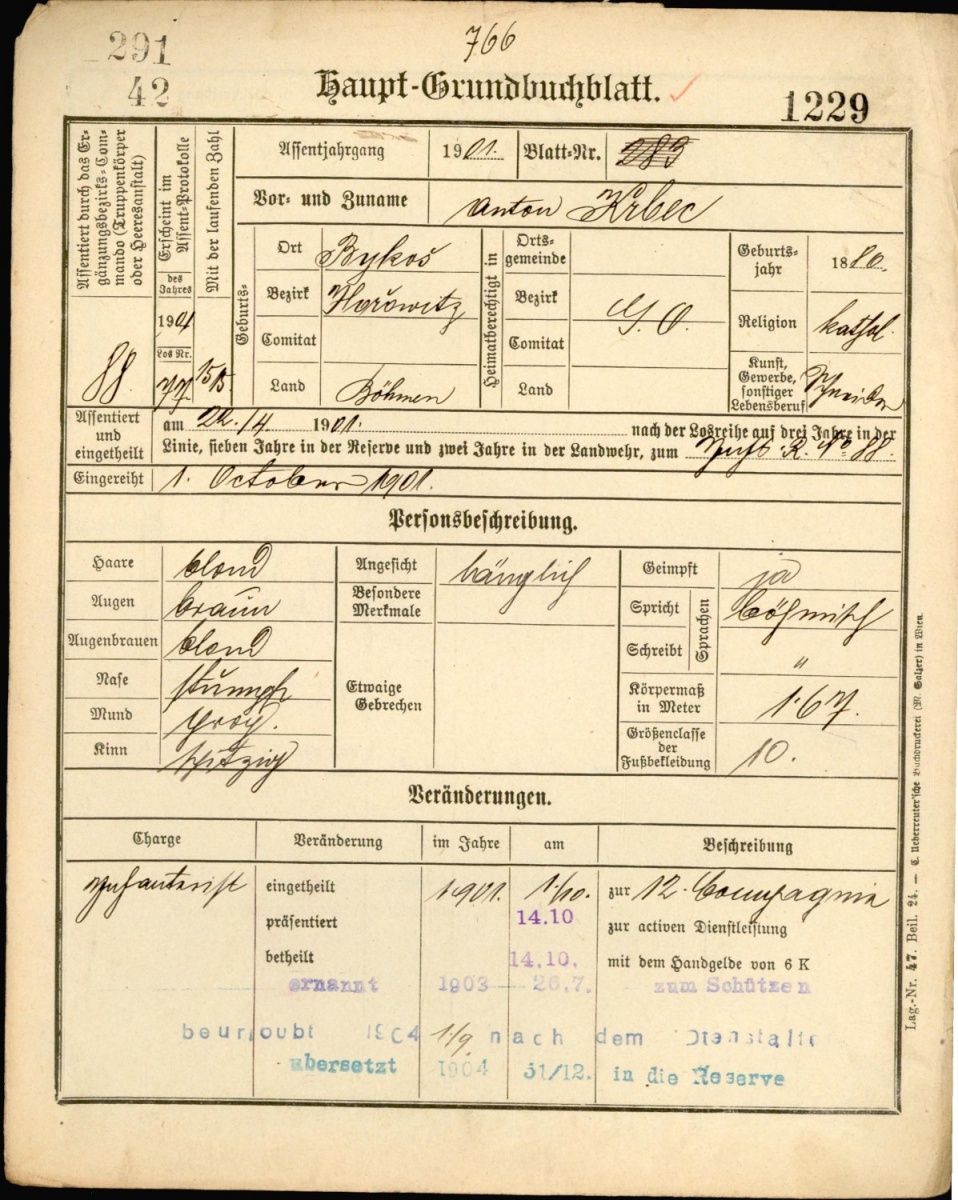 291
42
766
Haupt-Grundbuchblatt.
1229
Assentiert durch das Er-
gänzungsbezirks-Com-
mando (Truppenkörper
oder Heeresanstalt)
88
Erscheint im
Assent-Protokolle
des
Jahres
1901
Los Nr.
77
Mit der laufenden Zahl
1515
Assentjahrgang
1901.
Blatt-Nr.
283
Vor- und Zuname
Anton Krbec
Geburts-
Ort
Bykoš
Bezirk
Hořowitz
Comitat
Land
Böhmen
Heimatberechtigt in
Orts-
gemeinde
Bezirk
Comitat
Land
G. O.
Geburts-
jahr
1880.
Religion
kathol.
Kunst,
Gewerbe,
sonstiger
Lebensberuf
Schneider
Assentiert
und
eingetheilt
am 22./4. 1901. nach der Losreihe auf drei Jahre in der
Linie, sieben Jahre in der Reserve und zwei Jahre in der Landwehr, zum Inft. R. No 88.
Eingereiht
1. October 1901.
Personsbeschreibung.
Haare
blond
Augen
braun
Augenbrauen
blond
Nase
stumpf
Mund
groß.
Kinn
spitzig
Angesicht
länglich
Besondere
Merkmale
Etwaige
Gebrechen
Geimpft
ja
Spricht
Schreibt
Sprachen
böhmisch
"
Körpermaß
in Meter
1·67.
Größenclasse
der
Fußbekleidung
10.
Veränderungen.
Charge
Veränderung
im Jahre
am
Beschreibung
Infanterist
eingetheilt
1901.
1./10.
zur 12. Compagnie
präsentiert
14.10
zur activen Dienstleistung
betheilt
14.10.
mit dem Handgelde von 6 K
ernannt 1903 — 26.7. zum Schützen
beurloubt 1904 1/9 nach dem
übersetzt 1904 31/12. in die Reserve
Lag.-Nr. 47. Beil. 24. — C. Ueberreuter'sche Buchdruckerei (M. Salzer) in Wien.